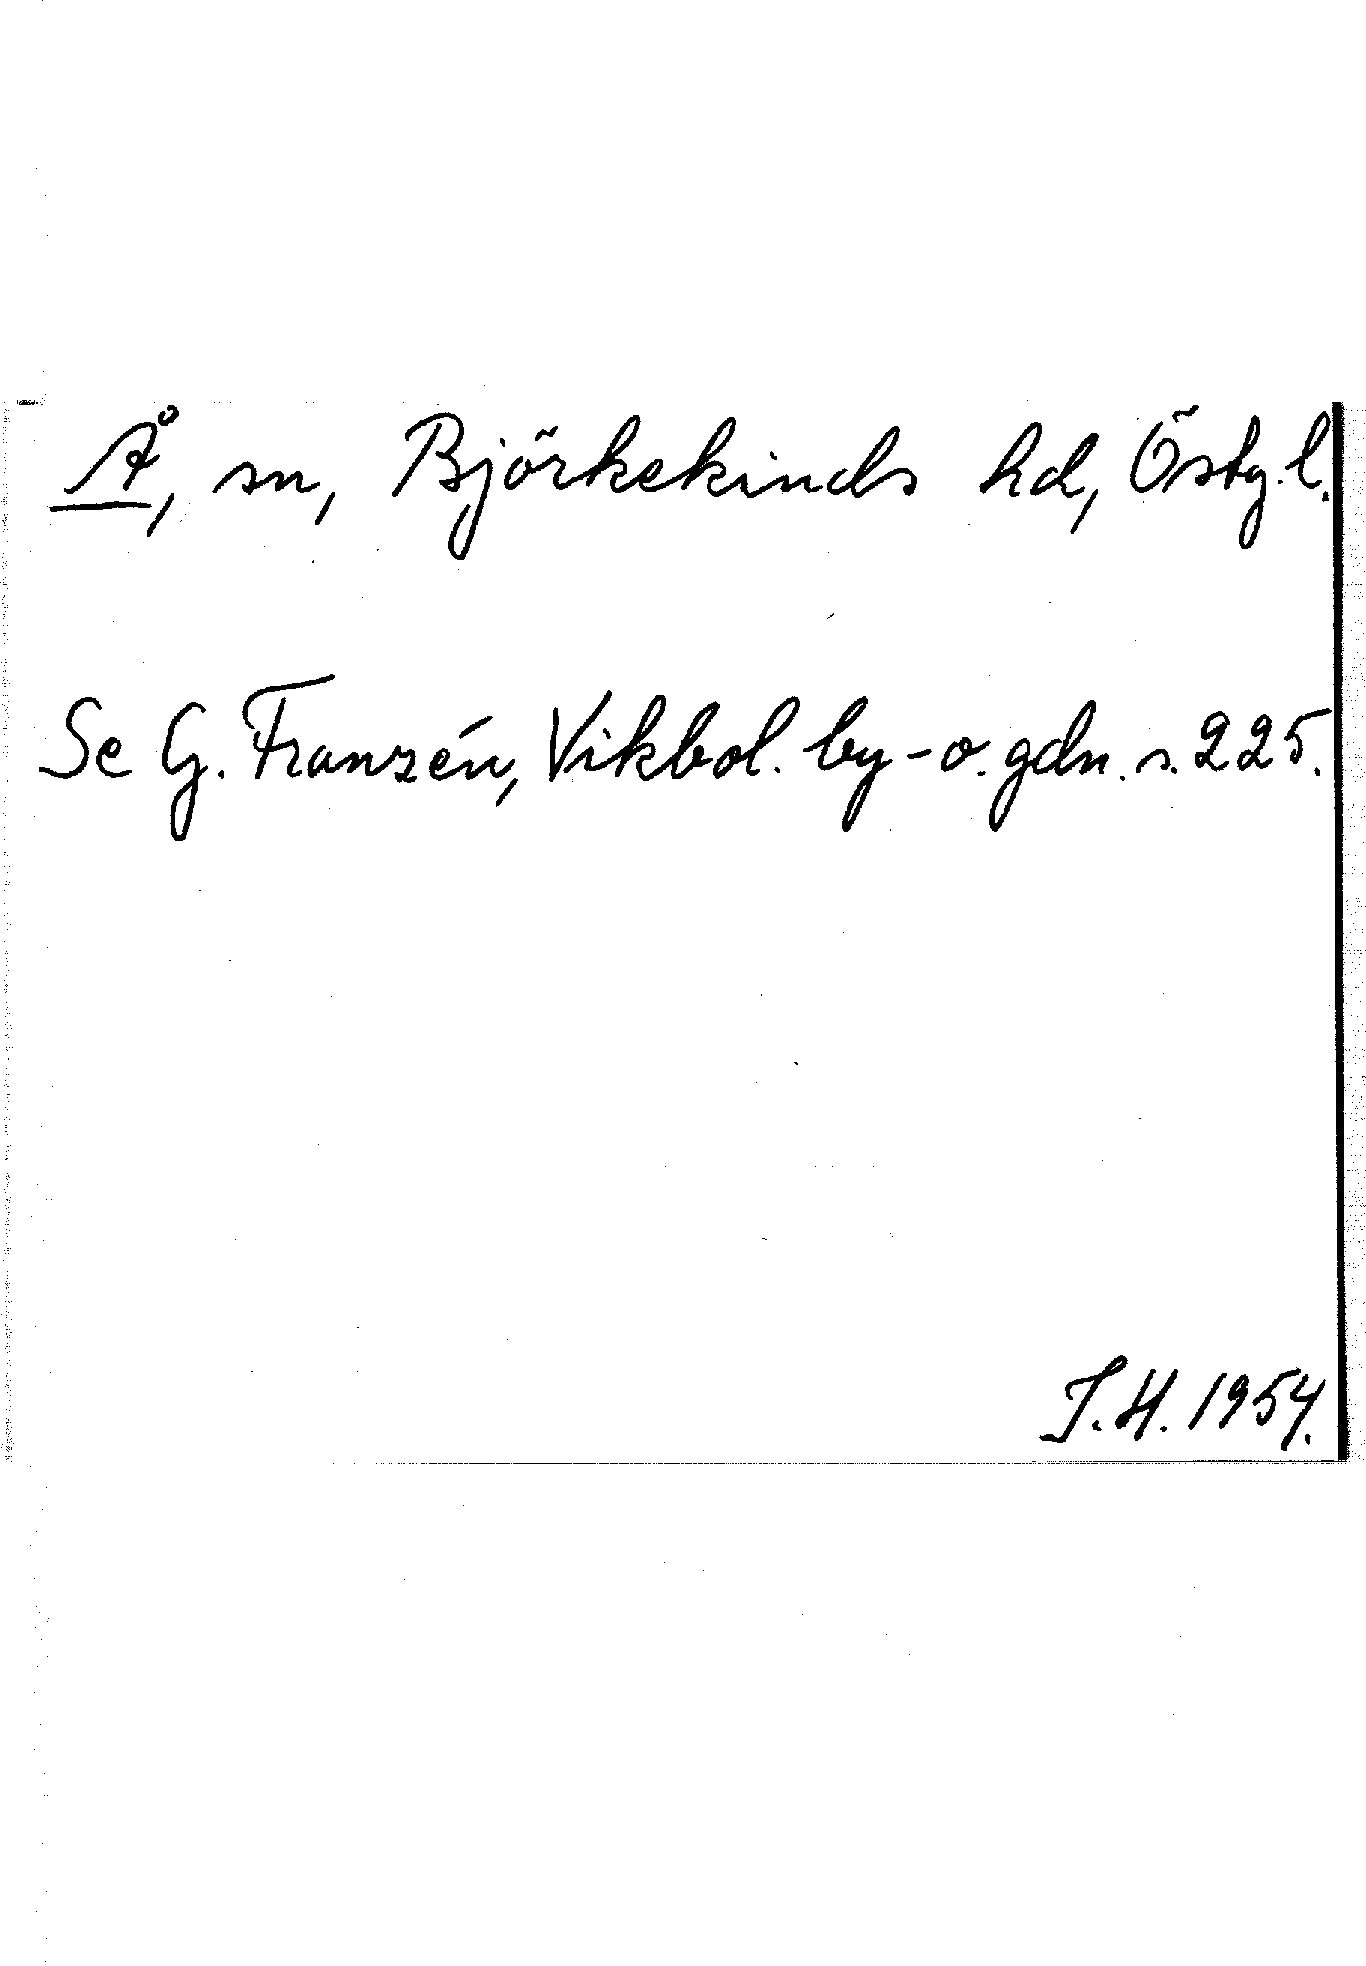 Å, sn, Björkekinds hd, Östg.l.
Se G. Franzén, Vikbol. by- o. gdn. s. 225.
J.H. 1954.